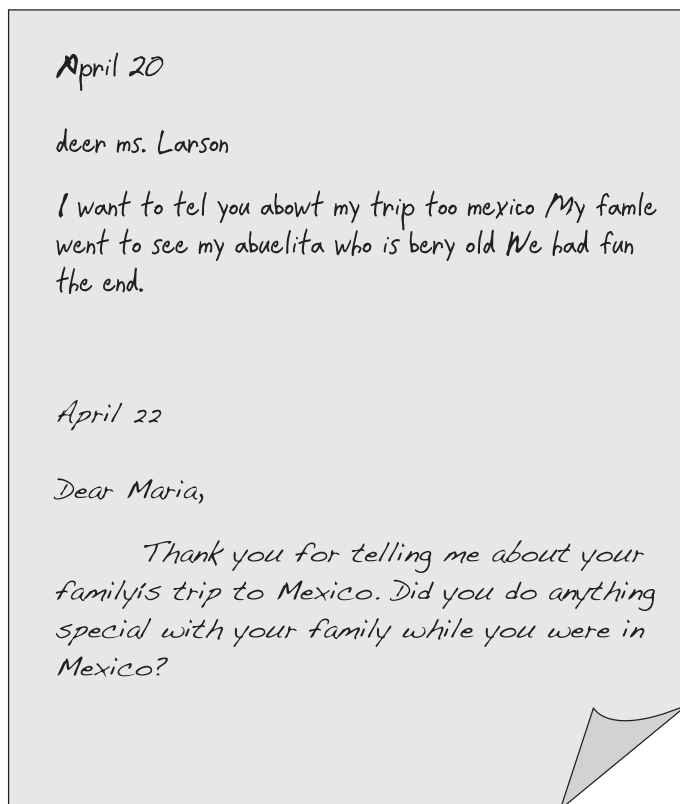 April 20
deer ms. Larson
I want to tel you abowt my trip too mexico My famle
went to see my abuelita who is bery old We had fun
the end.
April 22
Dear Maria,
Thank you for telling me about your
familyís trip to Mexico. Did you do anything
special with your family while you were in
Mexico?